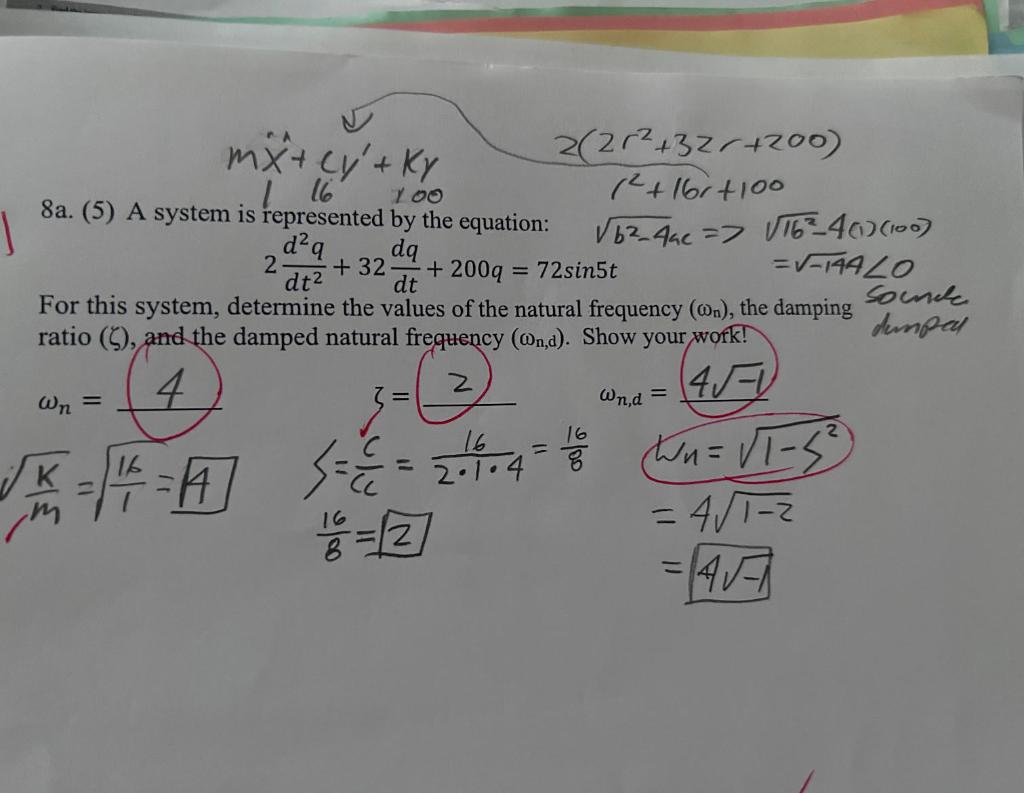 mẍ + cy' + Ky
1 16 100
2(2r²+32r+200)
r²+16r+100
√b²-4ac => √16²-4(1)(100)
=√-144<0
damped
8a. (5) A system is represented by the equation:
2 d²q/dt² + 32 dq/dt + 200q = 72sin5t
For this system, determine the values of the natural frequency (ωn), the damping
ratio (ζ), and the damped natural frequency (ωn,d). Show your work!
ωn = 4
ζ = 2
ωn,d = 4√-1
√K/m = √16/1 = 4
ζ = c/cc = 16/2·1·4 = 16/8
16/8 = 2
Wn = √1-ζ²
= 4√1-2
= 4√-1